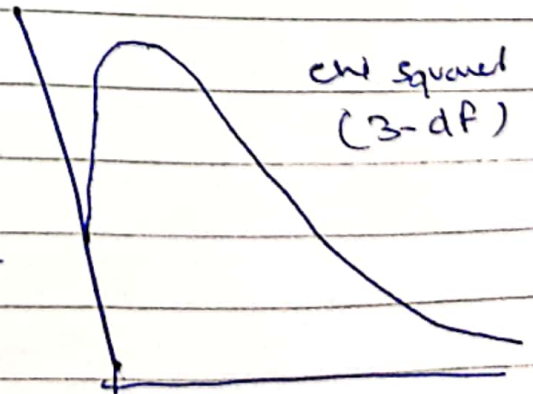 chi squared
(3-df)